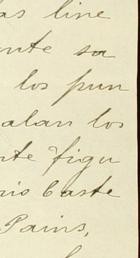 as line
nte sa
los pun
alan los
nte figu
ris baste
Pains,